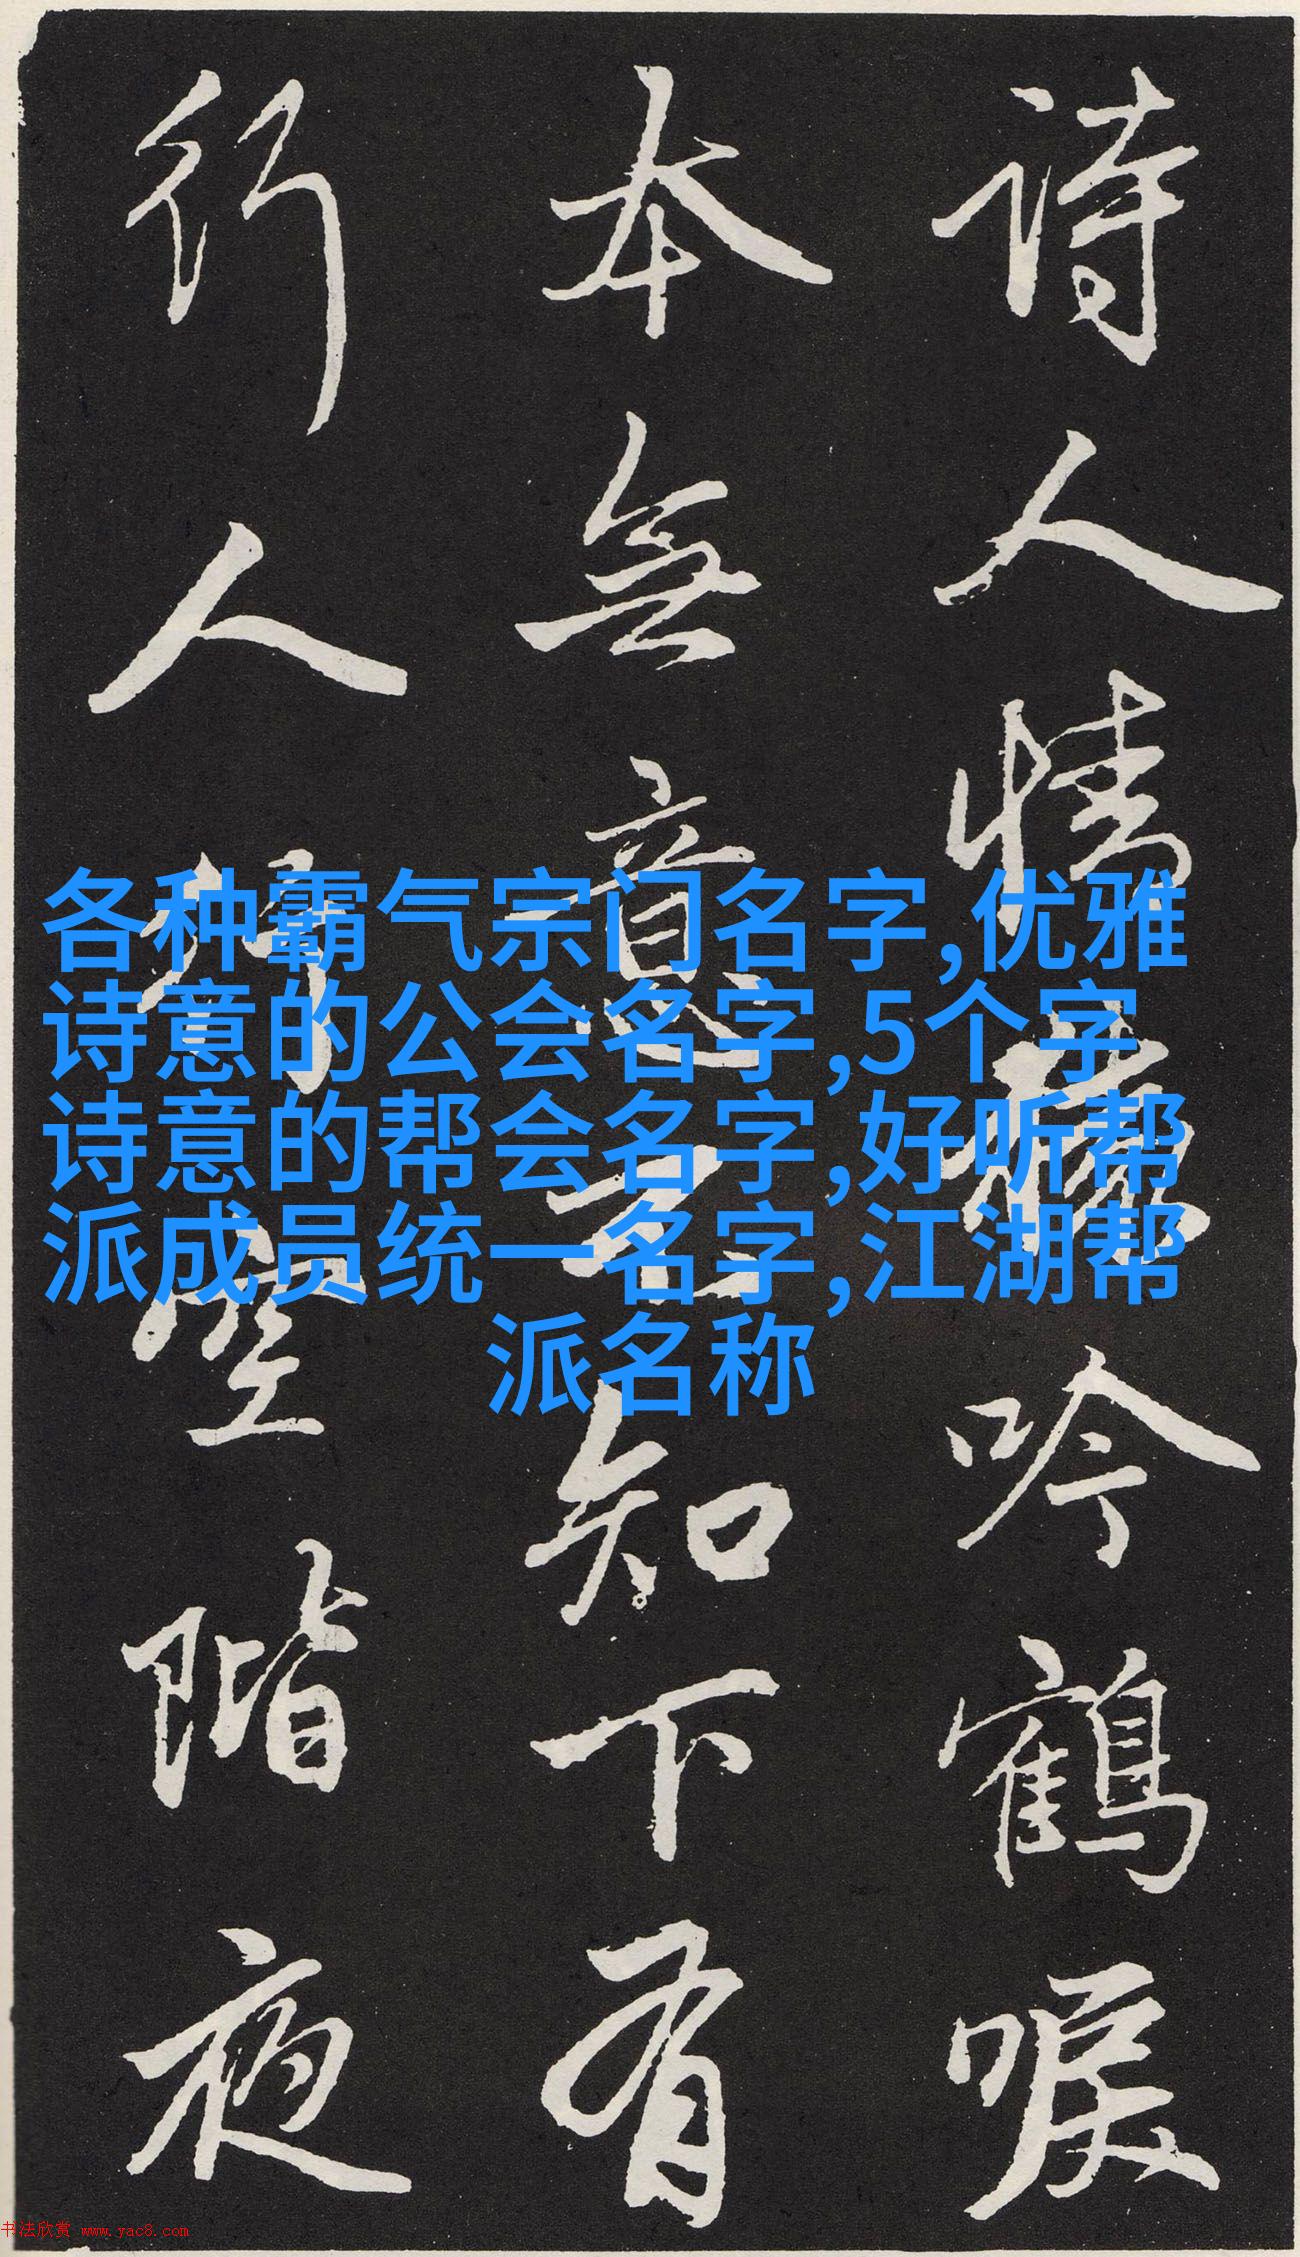 诗人情吟鶴唳
本無意知下有
行人行空階夜
各种霸气宗门名字,优雅
诗意的公会名字,5个字
诗意的帮会名字,好听帮
派成员统一名字,江湖帮
派名称
书法欣赏 www.yac8.com